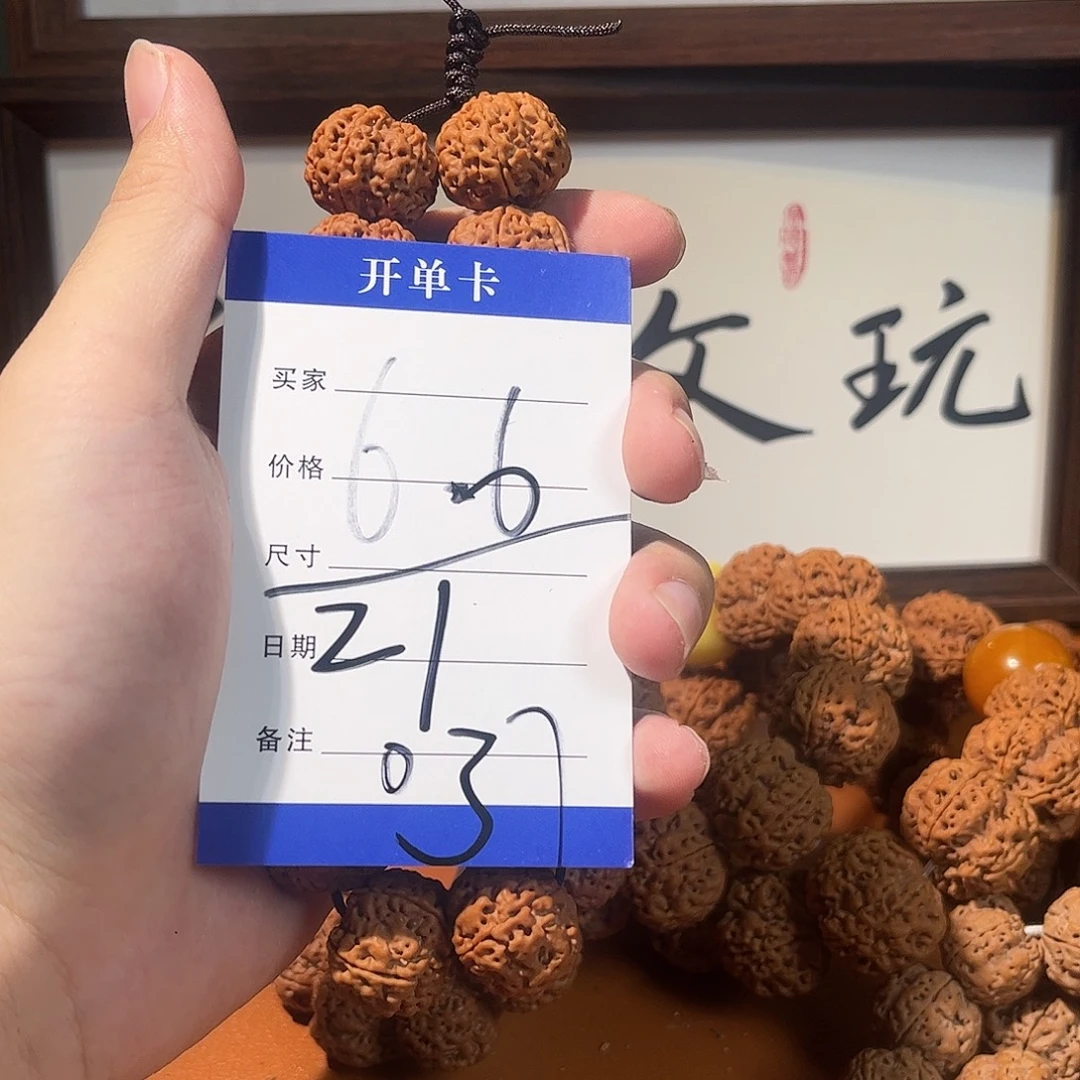 开单卡
买家
价格 6.6
尺寸
日期 21
备注 037
文玩